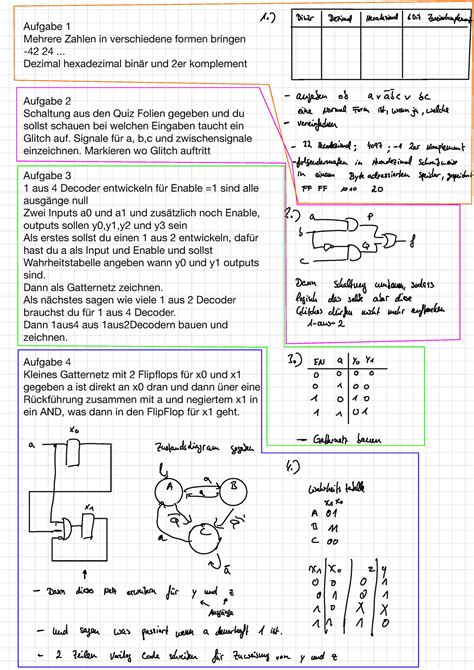 Aufgabe 1
Mehrere Zahlen in verschiedene formen bringen
-42 24 ...
Dezimal hexadezimal binär und 2er komplement
1.)
Binär Dezimal Hexadezimal 6Bit Zweierkomplement
- angeben ob a v a̅b̅c v bc
eine Normal Form ist, wenn ja, welche
- vereinfachen
- 32 Hexadezimal; 4099; -1 2er Komplement
in einem Byte adressierten Speicher, gespeichert
FF FF 1010 20
Aufgabe 2
Schaltung aus den Quiz Folien gegeben und du
sollst schauen bei welchen Eingaben taucht ein
Glitch auf. Signale für a, b,c und zwischensignale
einzeichnen. Markieren wo Glitch auftritt
2.)
a
b
c
P
Q
f
Dann Schaltung umbauen sodass
Logisch das selbe aber diese
Glitches dürfen nicht mehr auftreten
1-aus-2
Aufgabe 3
1 aus 4 Decoder entwickeln für Enable =1 sind alle
ausgänge null
Zwei Inputs a0 und a1 und zusätzlich noch Enable,
outputs sollen y0,y1,y2 und y3 sein
Als erstes sollst du einen 1 aus 2 entwickeln, dafür
hast du a als Input und Enable und sollst
Wahrheitstabelle angeben wann y0 und y1 outputs
sind.
Dann als Gatternetz zeichnen.
Als nächstes sagen wie viele 1 aus 2 Decoder
brauchst du für 1 aus 4 Decoder.
Dann 1aus4 aus 1aus2Decodern bauen und
zeichnen.
3.)
EN a Y0 Y1
0 0 0 0
0 1 0 0
1 0 1 0
1 1 0 1
- Gatternetz bauen
Aufgabe 4
Kleines Gatternetz mit 2 Flipflops für x0 und x1
gegeben a ist direkt an x0 dran und dann üner eine
Rückführung zusammen mit a und negiertem x1 in
ein AND, was dann in den FlipFlop für x1 geht.
a
x0
x1
Zustandsdiagram gegeben
A
B
C
a
a
a̅
a̅
a̅
4.)
Wahrheits tabelle
x1 x0
A 01
B 11
C 00
x1 x0 z y
0 0 0 1
0 1 0 1
1 0 X X
1 1 1 0
- Dann dieses Netz erweitern für y und z
Ausgänge
- und sagen was passiert wenn a dauerhaft 1 ist.
- 2 Zeilen Verilog Code schreiben für Zuweisung von y und z